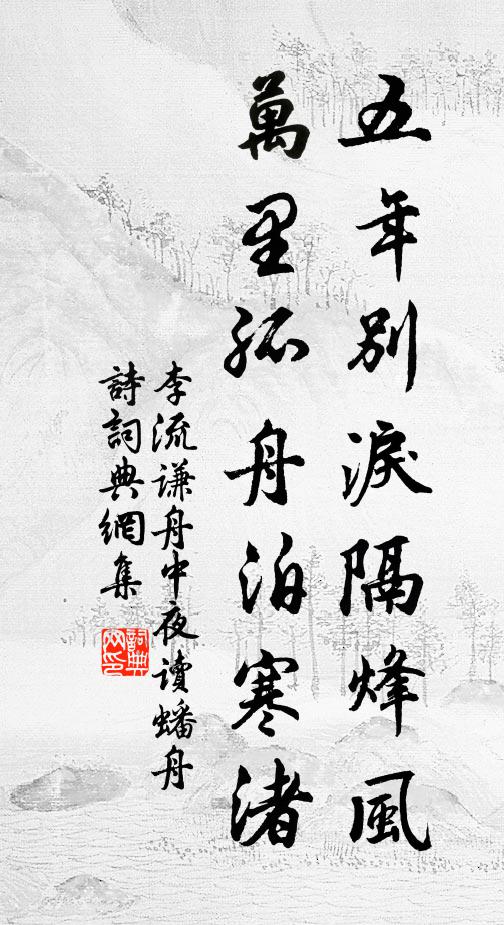 五年別淚隔烽風
萬里孤舟泊寒渚
李流謙舟中夜讀蟠舟
詩詞典網集
詞典網印